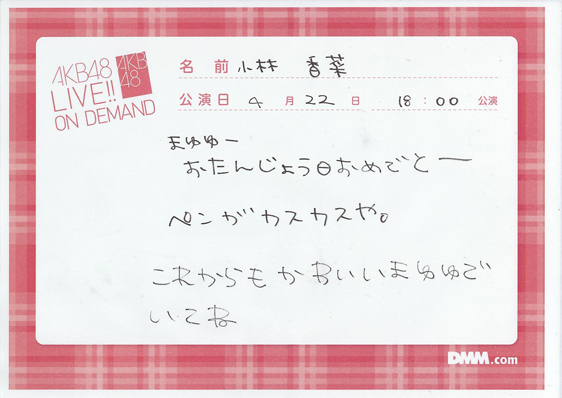 AKB48
LIVE!!
ON DEMAND
AKB
48
名 前 小林 香菜
公演日 4 月 22 日 18:00 公演
まゆゆー
おたんじょう日おめでとー
ペンがカスカスや。
これからもかわいいまゆゆで
いてね
DMM.com